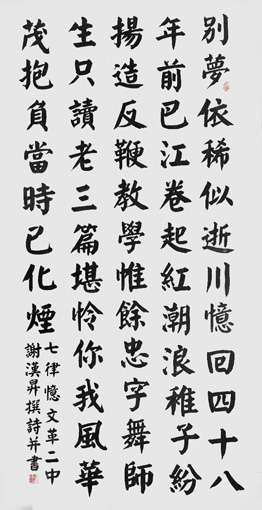 別夢依稀似逝川憶回四十八
年前巴江卷起紅潮浪稚子紛
揚造反鞭教學惟餘忠字舞師
生只讀老三篇堪怜你我風華
茂抱負當時已化煙
七律憶文革二中
謝漢昇撰詩并書